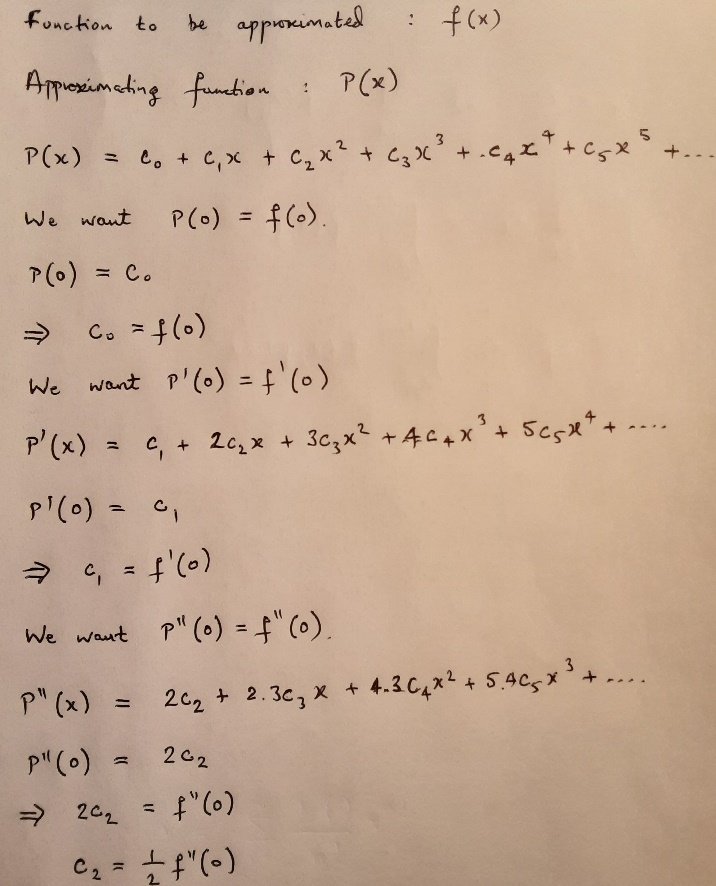 Function to be approximated : f(x)
Approximating function : P(x)
P(x) = c₀ + c₁x + c₂x² + c₃x³ + .c₄x⁴ + c₅x⁵ + ....
We want P(0) = f(0).
P(0) = c₀
⇒ c₀ = f(0)
We want P'(0) = f'(0)
P'(x) = c₁ + 2c₂x + 3c₃x² + 4c₄x³ + 5c₅x⁴ + ....
P'(0) = c₁
⇒ c₁ = f'(0)
We want P"(0) = f"(0).
P"(x) = 2c₂ + 2.3c₃x + 4.3c₄x² + 5.4c₅x³ + ....
P"(0) = 2c₂
⇒ 2c₂ = f"(0)
c₂ = 1/2 f"(0)